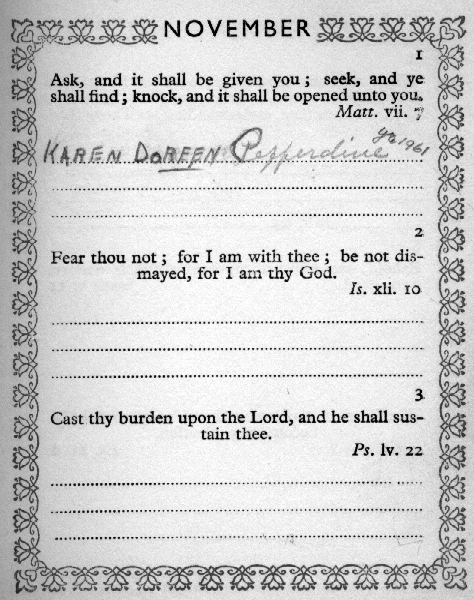 NOVEMBER
1
Ask, and it shall be given you ; seek, and ye
shall find ; knock, and it shall be opened unto you.
Matt. vii. 7
KAREN DOREEN Pepperdine 1961
2
Fear thou not ; for I am with thee ; be not dis-
mayed, for I am thy God.
Is. xli. 10
3
Cast thy burden upon the Lord, and he shall sus-
tain thee.
Ps. lv. 22